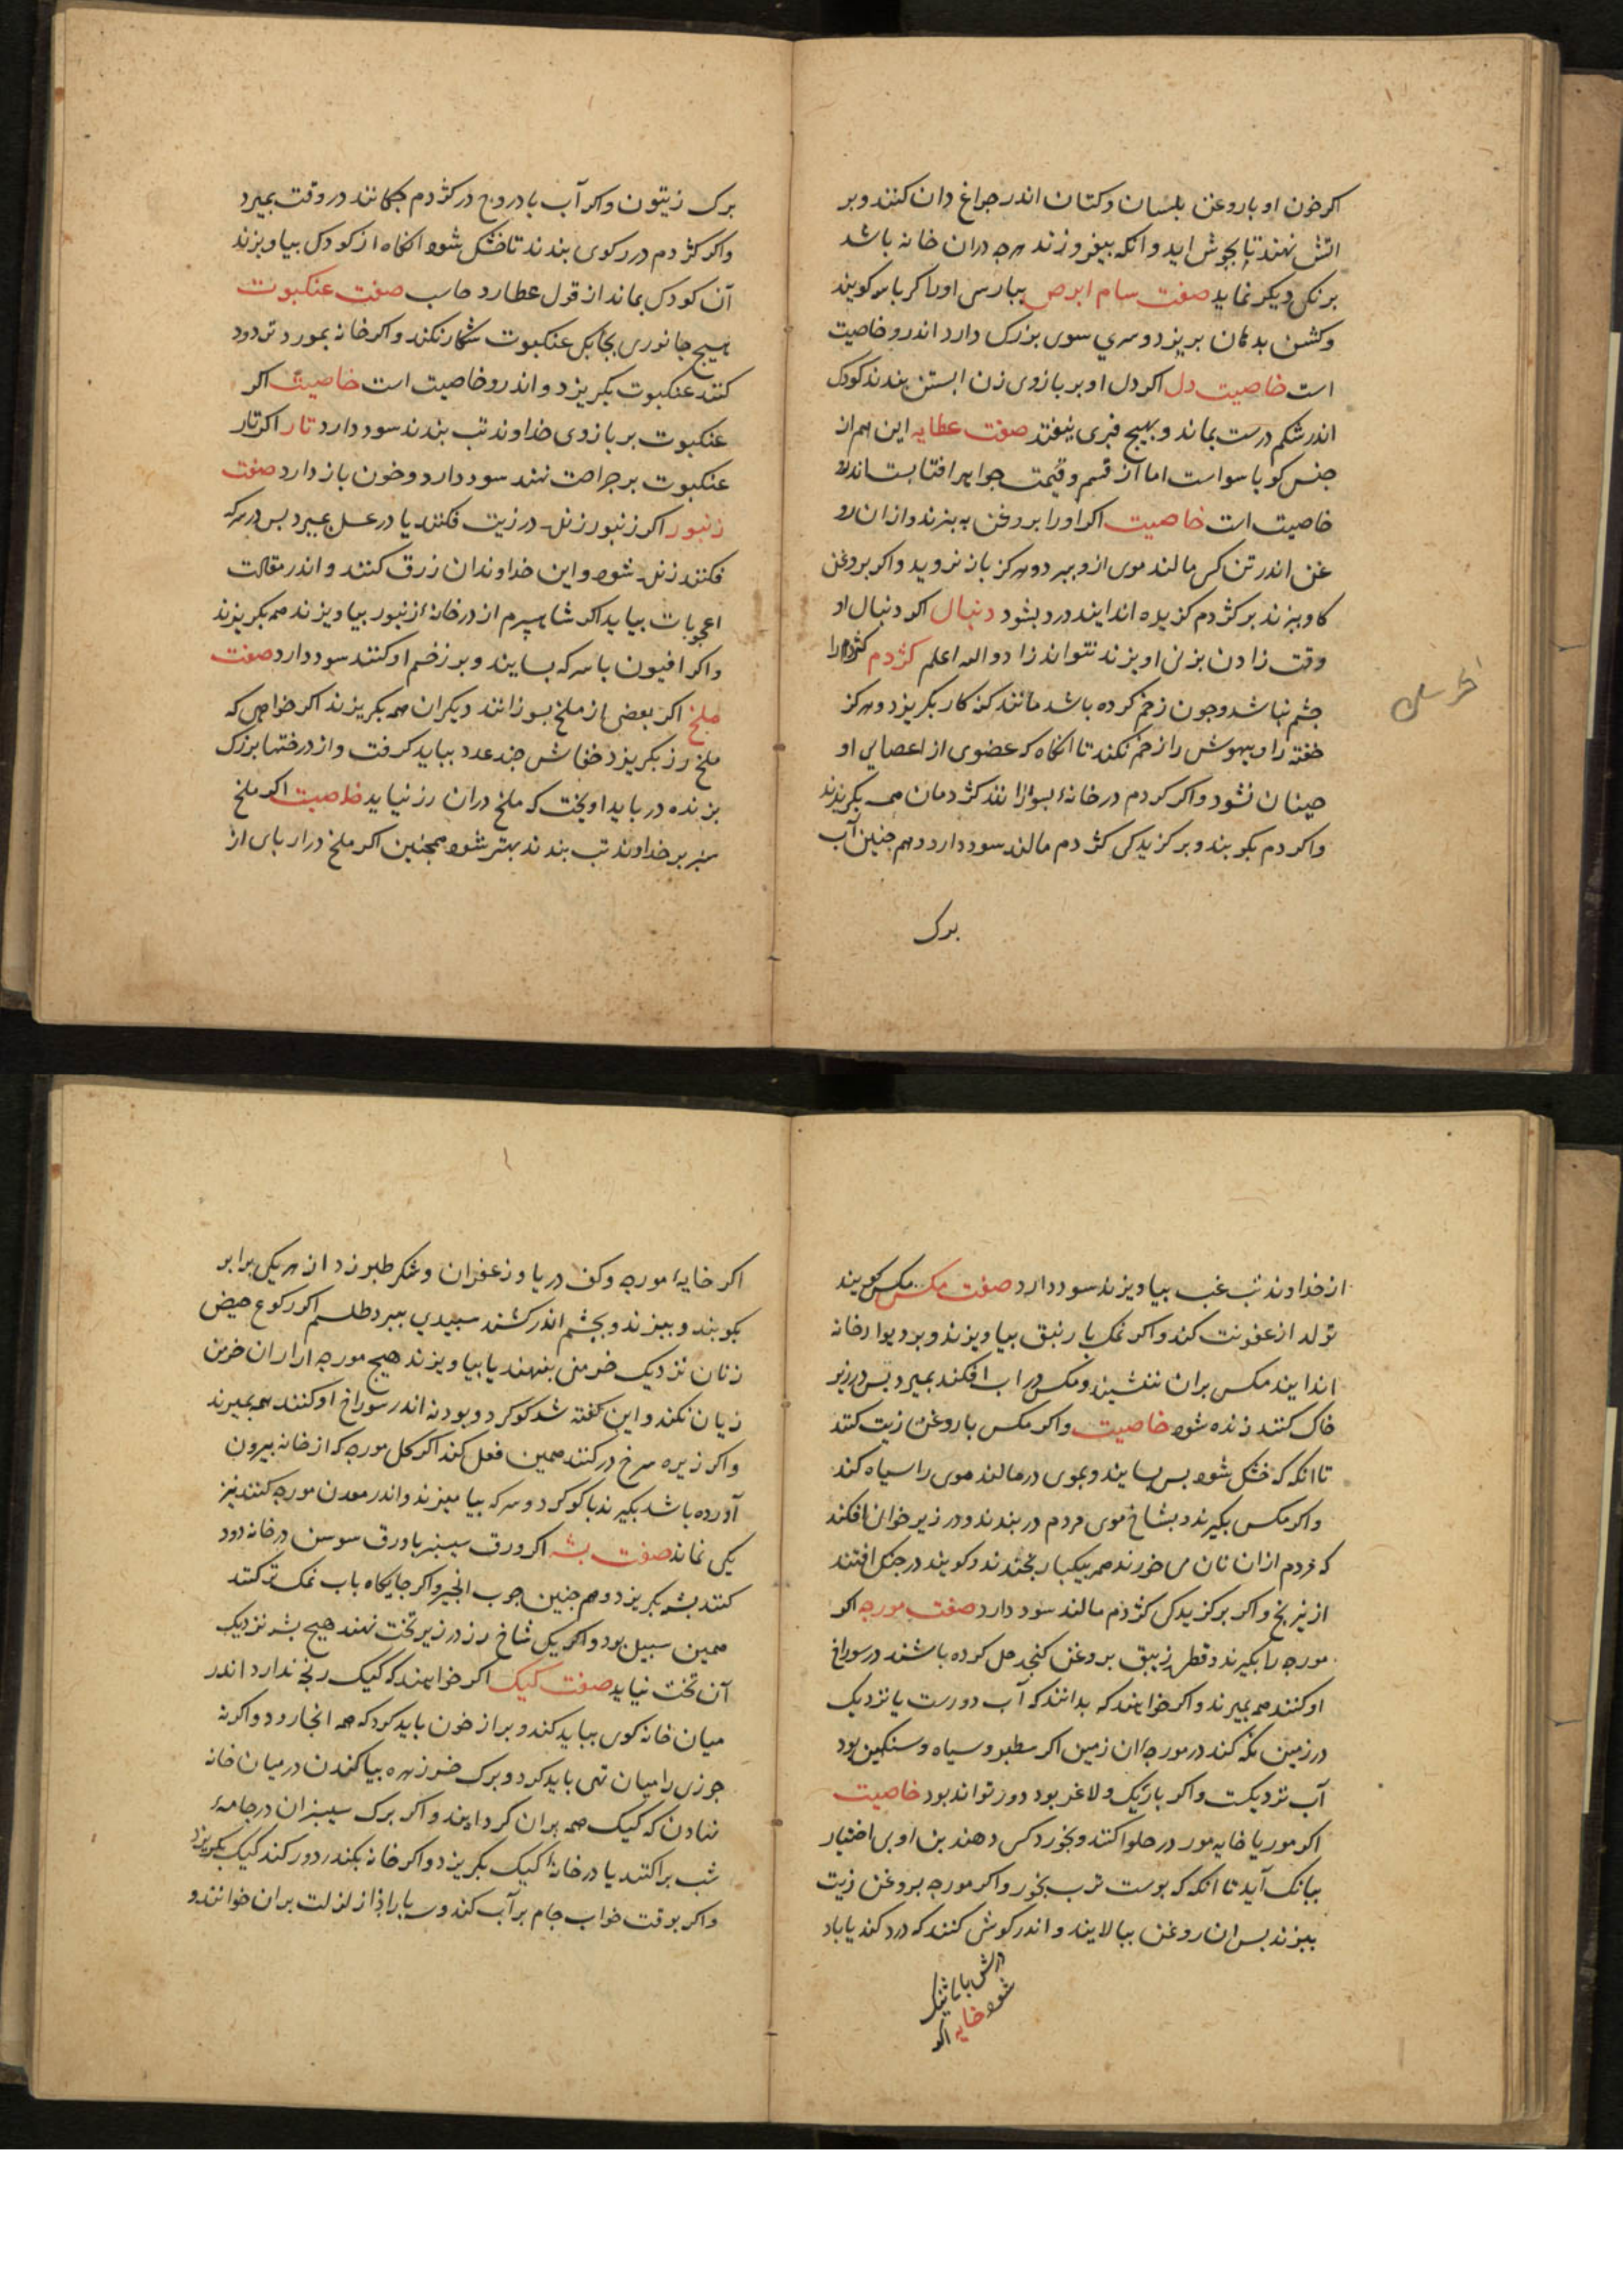 اکر خون او با روغن بلسان و کتان اندر جراغ دان کنند و بر
اتش نهند تا بجوش اید و انکه بیفروزند هرجه دران خانه باشد
برنکی دیکر نماید صفت سام ابرص ببارسی اورا کرباسو کویند
و کشن بدمان بریزد و سری سوی بزرک دارد اندرو خاصیت
است خاصیت دل اکر دل او بر بازوی زن ابستن بندند کودک
اندر شکم درست بماند و بهیج نیفتد صفت عطایه این هم از
جنس کرباسو است اما از قسم و قیمت جواهر افتابست اندرو
خاصیت است خاصیت اکر اورا بروغن به بزند و ازان رو
غن اندر تن کس مالند موی ازو ببرد و هرکز باز نروید و اکر بروغن
کاو بزند بر کژدم کزیده اندایند درد بشود دنبال اکر دنبال او
وقت زادن بزن اویزند نتواند زاد و الله اعلم کژدم کژدم را
جشم نباشد و جون زخم کرده باشد مانند کنه کار بکریزد و هرکز
خفته را و بیهوش را زخم نکند تا انکاه که عضوی از اعصای او
جنبان نشود و اکر کژدم در خانه بسوزانند کژدمان همه بکریزند
و اکر دم بکوبند و بر کزیدکی کژدم مالند سود دارد و هم جنین آب
برک
برک زیتون و اکر آب بادروج در کژدم جکانند در وقت بمیرد
و اکر کژدم در رکوی بندند تا خشک شود انکاه از کودک بیاویزند
آن کودک بماند از قول عطارد حاسب صفت عنکبوت
هیج جانوری بجابکی عنکبوت شکار نکند و اکر خانه بمورد تر دود
کنند عنکبوت بکریزد و اندرو خاصیت است خاصیت اکر
عنکبوت بر بازوی خداوند تب بندند سود دارد تار اکر تار
عنکبوت بر جراحت نهند سود دارد و خون باز دارد صفت
زنبور اکر زنبور زنده در زیت فکنند یا در عسل بمیرد بس در سرکه
فکنند زنده شود و این خداوندان زرق کنند و اندر مقالت
اعجوبات بیاید اکر شاهسپرم از در خانه زنبور بیاویزند همه بکریزند
و اکر افیون با سرکه بسایند و بر زخم او کنند سود دارد صفت
ملخ اکر بعضی از ملخ بسوزانند دیکران همه بکریزند اکر خواهی که
ملخ رز بکریزد خفاش جند عدد بباید کرفت و از درختها بزرک
بزنده در باید اویخت که ملخ دران رز نیاید خاصیت اکر ملخ
سبز بر خداوند تب بندند بهتر شود همجنین اکر ملخ دراز بای از
از خداوند تب غب بیاویزند سود دارد صفت مکس مکس کویند
تولد از عفونت کند و اکر نمک با زنبق بیاویزند و بر دیوار خانه
اندایند مکس بران ننشیند و مکس در اب افکند بمیرد بس در زیر
خاک کنند زنده شود خاصیت و اکر مکس با روغن زیت کنند
تا انکه که خشک شود بس بسایند و بموی در مالند موی را سیاه کند
و اکر مکس بکیرند و بشاخ موی مردم در بندند و در زیر خوان افکند
که مردم ازان نان می خورند همه بیکبار بخندند و کویند در جنک افتند
از نیرنج و اکر بر کزیدکی کژدم مالند سود دارد صفت مورجه اکر
مورجه را بکیرند و قطره زیبق بروغن کنجد حل کرده باشند در سوراخ
او کنند همه بمیرند و اکر خواهند که بدانند که آب دورست یا نزدیک
در زمین نکه کند در مورجه ان زمین اکر سطبر و سیاه و سنکین بود
آب نزدیکست و اکر باریک و لاغر بود دور تواند بود خاصیت
اکر مور یا خایه مور در حلوا کنند و بخورد کس دهند بن او بی اختیار
ببانک آید تا انکه که بوست ترب بخورد و اکر مورجه بروغن زیت
ببزند بس ان روغن ببالایند و اندر کوش کنند که درد کند یا باد
شود خایه اکر
اکر خایه مورجه و کف دریا و زعفران و شکر طبرزد از هر یکی برابر
بکوبند و ببزند و بجشم اندر کشند سبیدی ببرد طلسم اکر رکوع حیض
زنان نزدیک خرمنی بنهند یا بیاویزند هیج مورجه ازان خرمن
زیان نکند و این کفته شد کوکرد و بودنه اندر سوراخ او کنند همه بمیرند
و اکر زیره سرخ در کنند همین فعل کند اکر کل مورجه که از خانه بیرون
آورده باشد بکیرند با کوکرد و سرکه بیامیزند و اندر معدن مورجه کنند نیز
یکی نماند صفت بشه اکر ورق سیسنبر یا ورق سوسن در خانه دود
کنند بشه بکریزد و هم جنین جوب انجیر و اکر جایکاه باب نمک تر کنند
همین سبیل بود و اکر یکی شاخ رز در زیر تخت نهند هیج بشه نزدیک
آن تخت نیاید صفت کیک اکر خواهند که کیک رنجه ندارد اندر
میان خانه کوی بباید کند و بر از خون باید کرد که همه انجا رود و اکر نه
جوزی را میان تهی باید کرد و برک خرزهره بیاکندن در میان خانه
نهادن که کیک همه بران کرد ایند و اکر برک سیسنبران در جامه
شب براکنند یا در خانه کیک بکریزد و اکر خانه بکندر دود کند کیک بکریزد
و اکر بوقت خواب جام بر آب کند و سه بار اذا زلزلت بران خوانند و